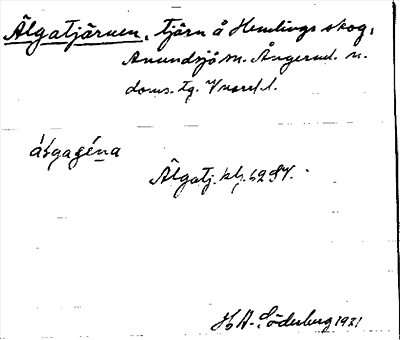 Älgatjärnen, tjärn å Hemlings skog,
Anundsjö sn. Ångerml. n.
doms. tg. Vnorrl. l.
Älgatj. kl. 62 SV.
H A. Söderberg 1931